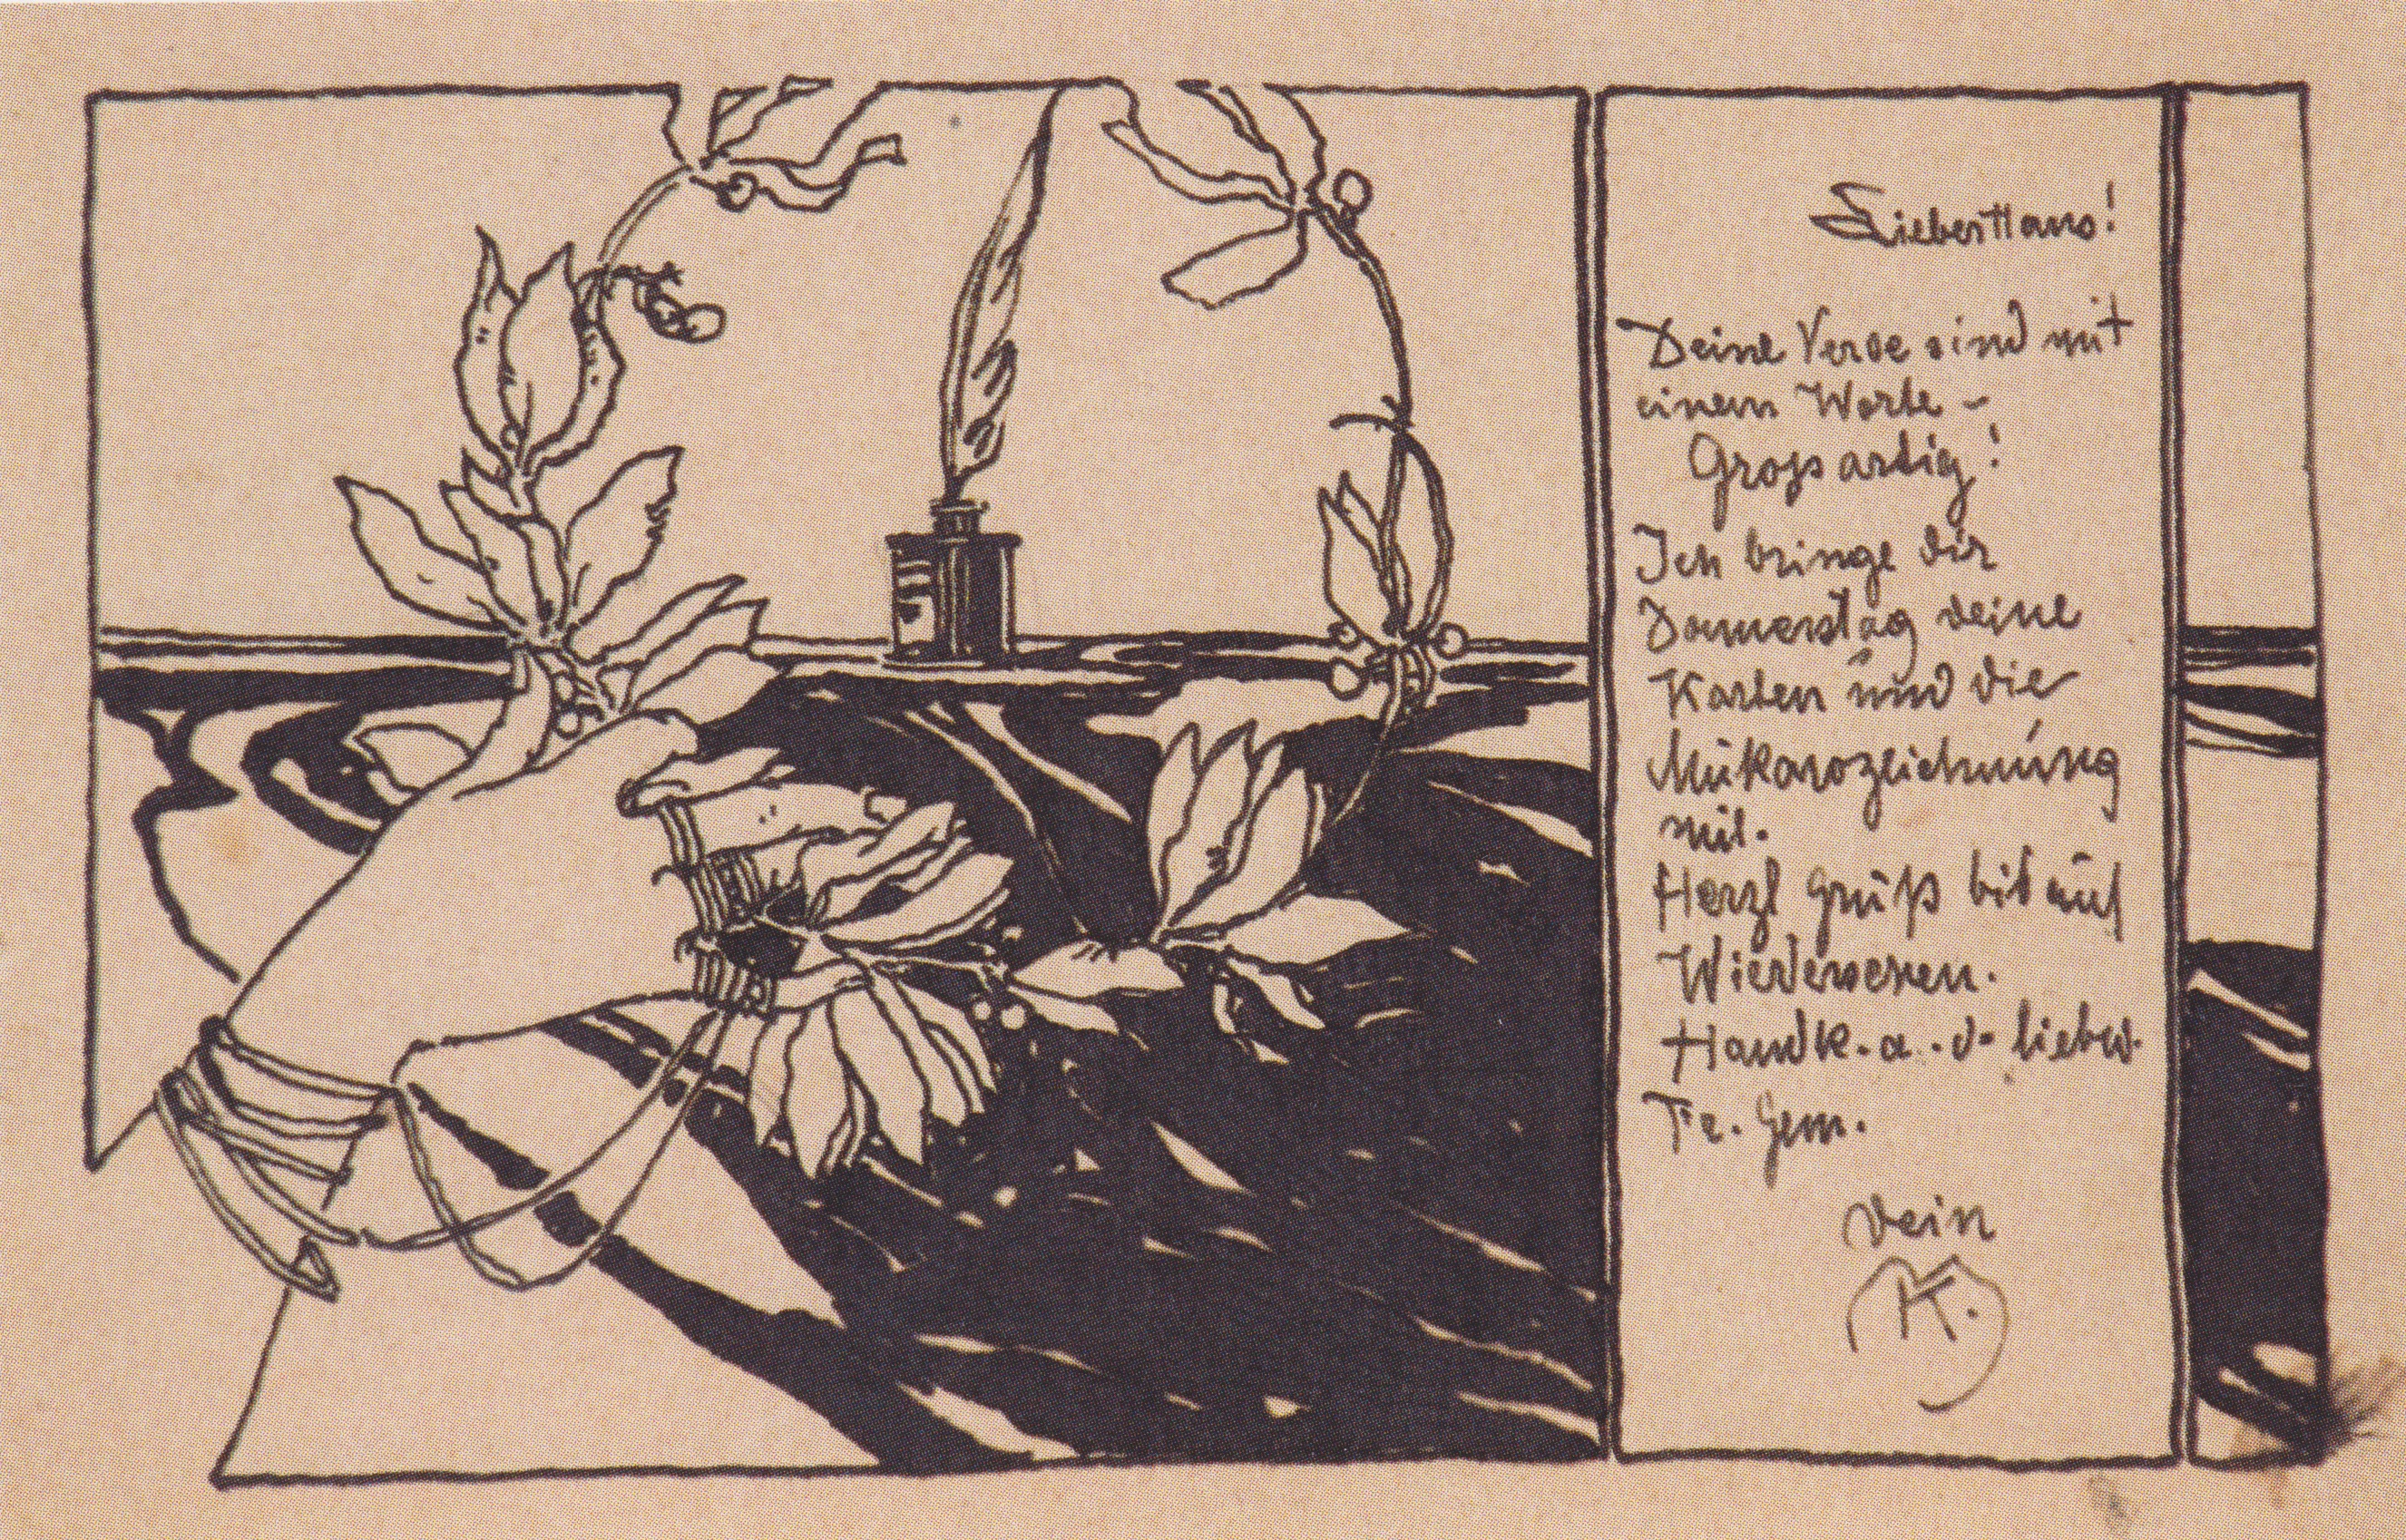 Lieber Hans!
Deine Verse sind mit
einem Worte –
Großartig!
Ich bringe dir
Donnerstag deine
Karten und die
mit.
Herzl Gruß bis auf
Wiedersehen.
Handk. a. d. liebw.
Fr. Gem.
Dein
K.